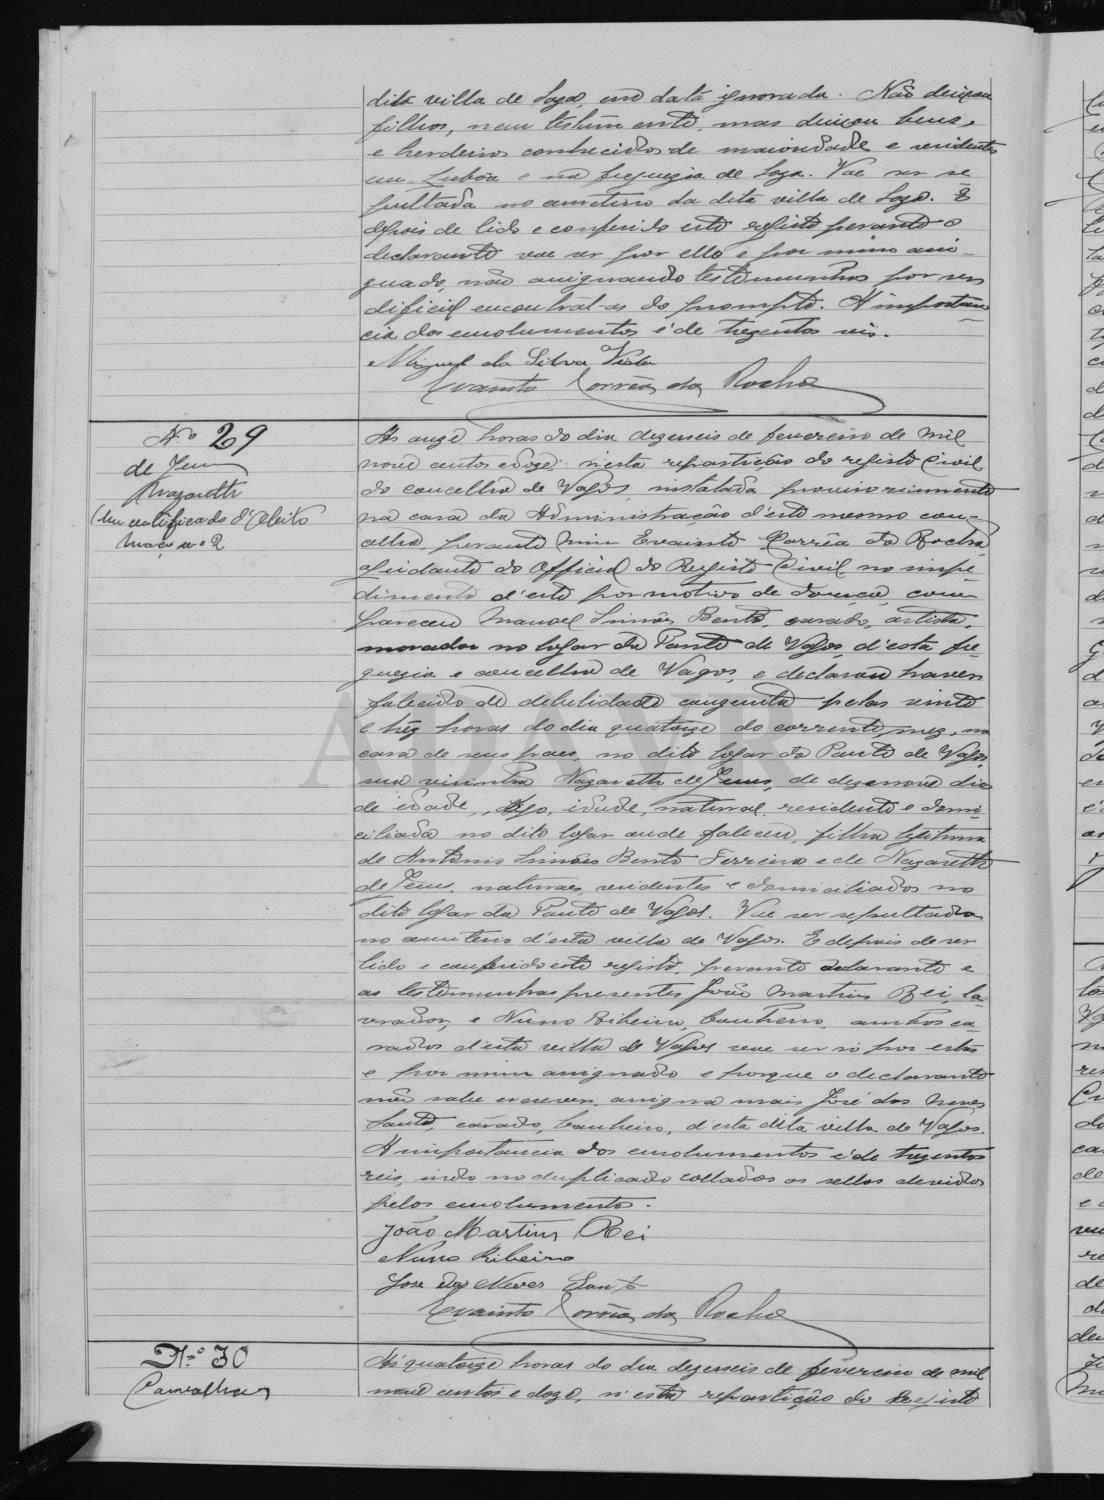 dita villa de Soza, em data ignorada. Não deixou
filhos, nem testamento, mas deixou bens,
e herdeiros conhecidos de maioridade e residentes
em Lisbôa e na freguezia de Soza. Vae ser se
pultada no cemiterio da dita villa de Soza. E
depois de lido e conferido este registo perante o
declarante vae ser por elle e por mim assi-
gnado, não assignando testemunhas por ser
dificil encontral-as de prompto. A importan
cia dos emolumentos é de trezentos reis.
Miguel da Silva
Evaristo Corrêa da Rocha
Nº 29
de Jesus
Nazareth
Um certificado d'obito
Maço nº 2
Ás onze horas do dia dezesseis de fevereiro de mil
nove centos e doze, n'esta repartição do registo Civil
do concelho de Vagos, instalada provisoriamente
na casa da Administração d'este mesmo con-
celho, perante mim Evaristo Corrêa da Rocha
ajudante do Official do Registo Civil no impe-
dimento d'este por motivo de doença, com
pareceu Manoel Simões Bento, casado, artista,
morador no logar da Ponte de Vagos, d'esta fre
guezia e concelho de Vagos, e declarou haver
falecido de debilidade congenita pelas vinte
e trez horas do dia quatorze do corrente mez, na
casa de seus paes, no dito logar da Ponte de Vagos,
sua Nazareth de Jesus, de dezenove dias
de idade, digo, idade, natural, residente e domi
ciliada no dito logar onde faleceu, filha legitima
de Antonio Simões Bento Ferreira e de Nazareth
de Jesus, naturaes, residentes e domiciliados no
dito logar da Ponte de Vagos. Vae ser sepultada
no cemiterio d'esta villa de Vagos. E depois de ser
lido e conferido este registo, perante declarante e
as testemunhas presentes João Martins Rei, la-
vrador, e Nuno Ribeiro, banheiro, ambos ca-
sados d'esta villa de Vagos vae ser só por estas
e por mim assignado e porque o declarante
não sabe escrever, assigna mais José das Neves
Santo, casado, banheiro, d'esta dita villa de Vagos.
A importancia dos emolumentos é de trezentos
reis, indo no duplicado collados os sellos devidos
pelos emolumentos.
João Martins Rei
Nuno Ribeiro
Jose das Neves Santo
Evaristo Corrêa da Rocha
Nº 30
Carvalhaes
Ás quatorze horas do dia dezesseis de fevereiro de mil
nove centos e doze, n'esta repartição do Registo